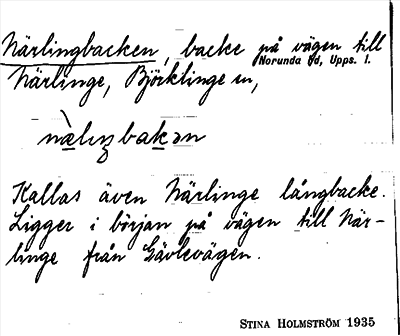 Närlingbacken, backe på vägen till
Norunda hd, Upps. l.
Närlinge, Björklinge sn,
nælıŋbakən
Kallas även Närlinge långbacke.
Ligger i början på vägen till När-
linge från Gävlevägen.
STINA HOLMSTRÖM 1935